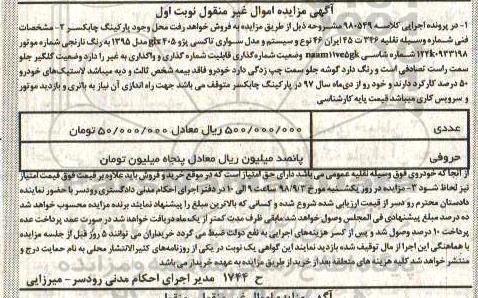 آگهی مزایده اموال غیر منقول نوبت اول
۱- در پرونده اجرایی کلاسه ۹۸۰۵۴۹ مشروحه ذیل از طریق مزایده به فروش خواهد رفت محل وجود پارکینگ چابکسر ۲- مشخصات
فنی شماره وسیله نقلیه ۳۴۶ ت ۴۵ ایران ۴۶ نوع و سیستم و مدل سواری تاکسی پژو ۴۰۵ glx مدل ۱۳۹۵ به رنگ نارنجی شماره موتور
۱۲۴k۰۹۳۳۱۹۸ شماره شاسی naam۱۱ve۵gk وضعیت شماره گذاری قابلیت شماره گذاری و واگذاری به غیر را دارد وضعیت گلگیر جلو
سمت راست تصادفی است و رنگ دارد گوشه جلو سمت چپ زدگی دارد خودرو فاقد بیمه شخص ثالث و دیه میباشد لاستیک‌های خودرو
۵۰ درصد کار کرد دارند و خودرو از دی‌ماه سال ۹۷ در پارکینگ چابکسر متوقف می باشد جهت راه اندازی آن نیاز به باتری و بازدید موتور
و سرویس کاری میباشد قیمت پایه کارشناسی
عددی ۵۰۰/۰۰۰/۰۰۰ ریال معادل ۵۰/۰۰۰/۰۰۰ تومان
حروفی پانصد میلیون ریال معادل پنجاه میلیون تومان
از آنجا که خودروی فوق وسیله نقلیه عمومی می باشد دارای حق امتیاز است که در موقع خرید و فروش باید علاوه بر قیمت فوق قیمت امتیاز
نیز لحاظ شود ۳- مزایده در روز یکشنبه مورخ ۹۸/۹/۳ ساعت ۹ الی ۱۰ در دفتر اجرای احکام مدنی دادگستری رودسر با حضور نماینده
دادستان محترم رودسر از قیمت ارزیابی شده شروع شده و کسانی که بالاترین مبلغ را پیشنهاد نمایند برنده مزایده محسوب خواهد شد
ده درصد مبلغ پیشنهادی فی المجلس وصول خواهد شد مابقی ظرف مدت کمتر از یک ماه دریافت خواهد شد در صورت عدم پرداخت عده
پرداخت ۱۰ درصد وصول شد و پس از کسر هزینه‌های اجرایی به نفع دولت ضبط می گردد خریداران می توانند ۵ روز قبل از جلسه مزایده
با هماهنگی این اجرا از مال توقیف شده بازدید نمایند این گواهی یک نوبت در یکی از روزنامه‌های کثیرالانتشار محلی به نام حمایت درج و
منتشر خواهد شد کلیه هزینه های متعلقه بعد از خرید از طریق مزایده به عهده خریدار می باشد
ح ۱۷۴۴ مدیر اجرای احکام مدنی رودسر - میرزایی
آگهی مزایده اموال غیر منقول - منقول